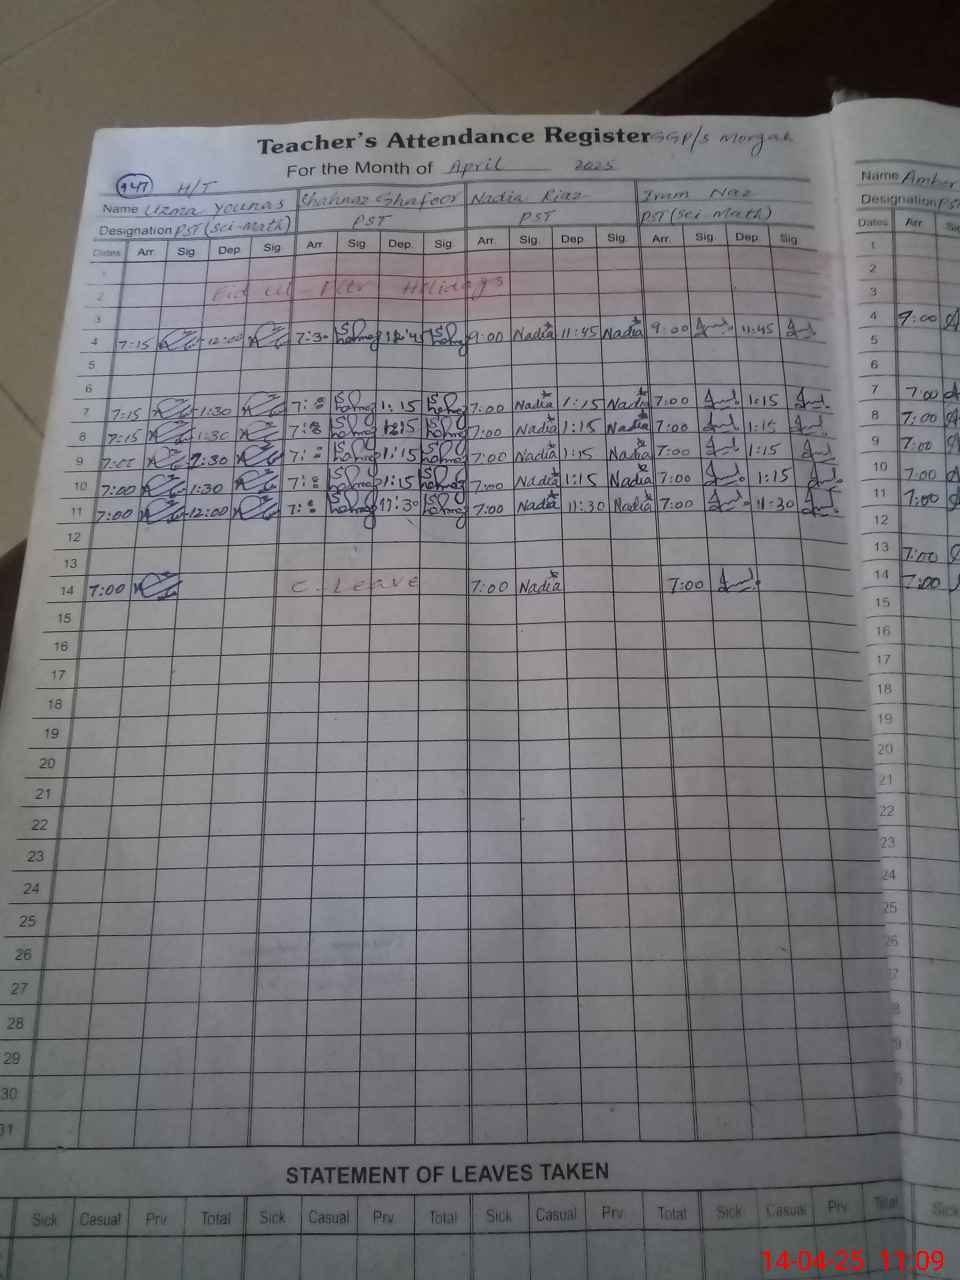 Teacher's Attendance Register GGP/s Morgah
For the Month of April 2025
947 H/T
Name Uzma Younas Shahnaz Ghafoor Nadia Riaz Irum Naz Name Amber
Designation PST (Sci-Math) PST PST PST (Sci-Math) Designation PS
Dates Arr. Sig. Dep. Sig. Arr. Sig. Dep. Sig. Arr. Sig. Dep. Sig. Arr. Sig. Dep. Sig. Dates Arr.
1 1
2 Eid ul-Fitr Holidays 2
3 3
4 7:15 12:00 7:30 9:00 Nadia 11:45 Nadia 9:00 11:45 4 9:00
5 5
6 6
7 7:15 1:30 1:15 7:00 Nadia 1:15 Nadia 7:00 1:15 7 7:00
8 7:15 1:30 7:00 Nadia 1:15 Nadia 7:00 1:15 8 7:00
9 7:00 1:15 7:00 Nadia 1:15 Nadia 7:00 1:15 9 7:00
10 7:00 1:30 1:15 7:00 Nadia 1:15 Nadia 7:00 1:15 10 7:00
11 7:00 12:00 7:00 Nadia 11:30 Nadia 7:00 11:30 11 7:00
12 12
13 13 7:00
14 7:00 C-Leave 7:00 Nadia 7:00 14 7:00
15 15
16 16
17 17
18 18
19 19
20 20
21 21
22 22
23 23
24 24
25 25
26 26
27
28
29
30
31
STATEMENT OF LEAVES TAKEN
Sick Casual Prv. Total Sick Casual Prv. Total Sick Casual Prv. Total Sick Casual Prv. Total Sick
14-04-25 11:09